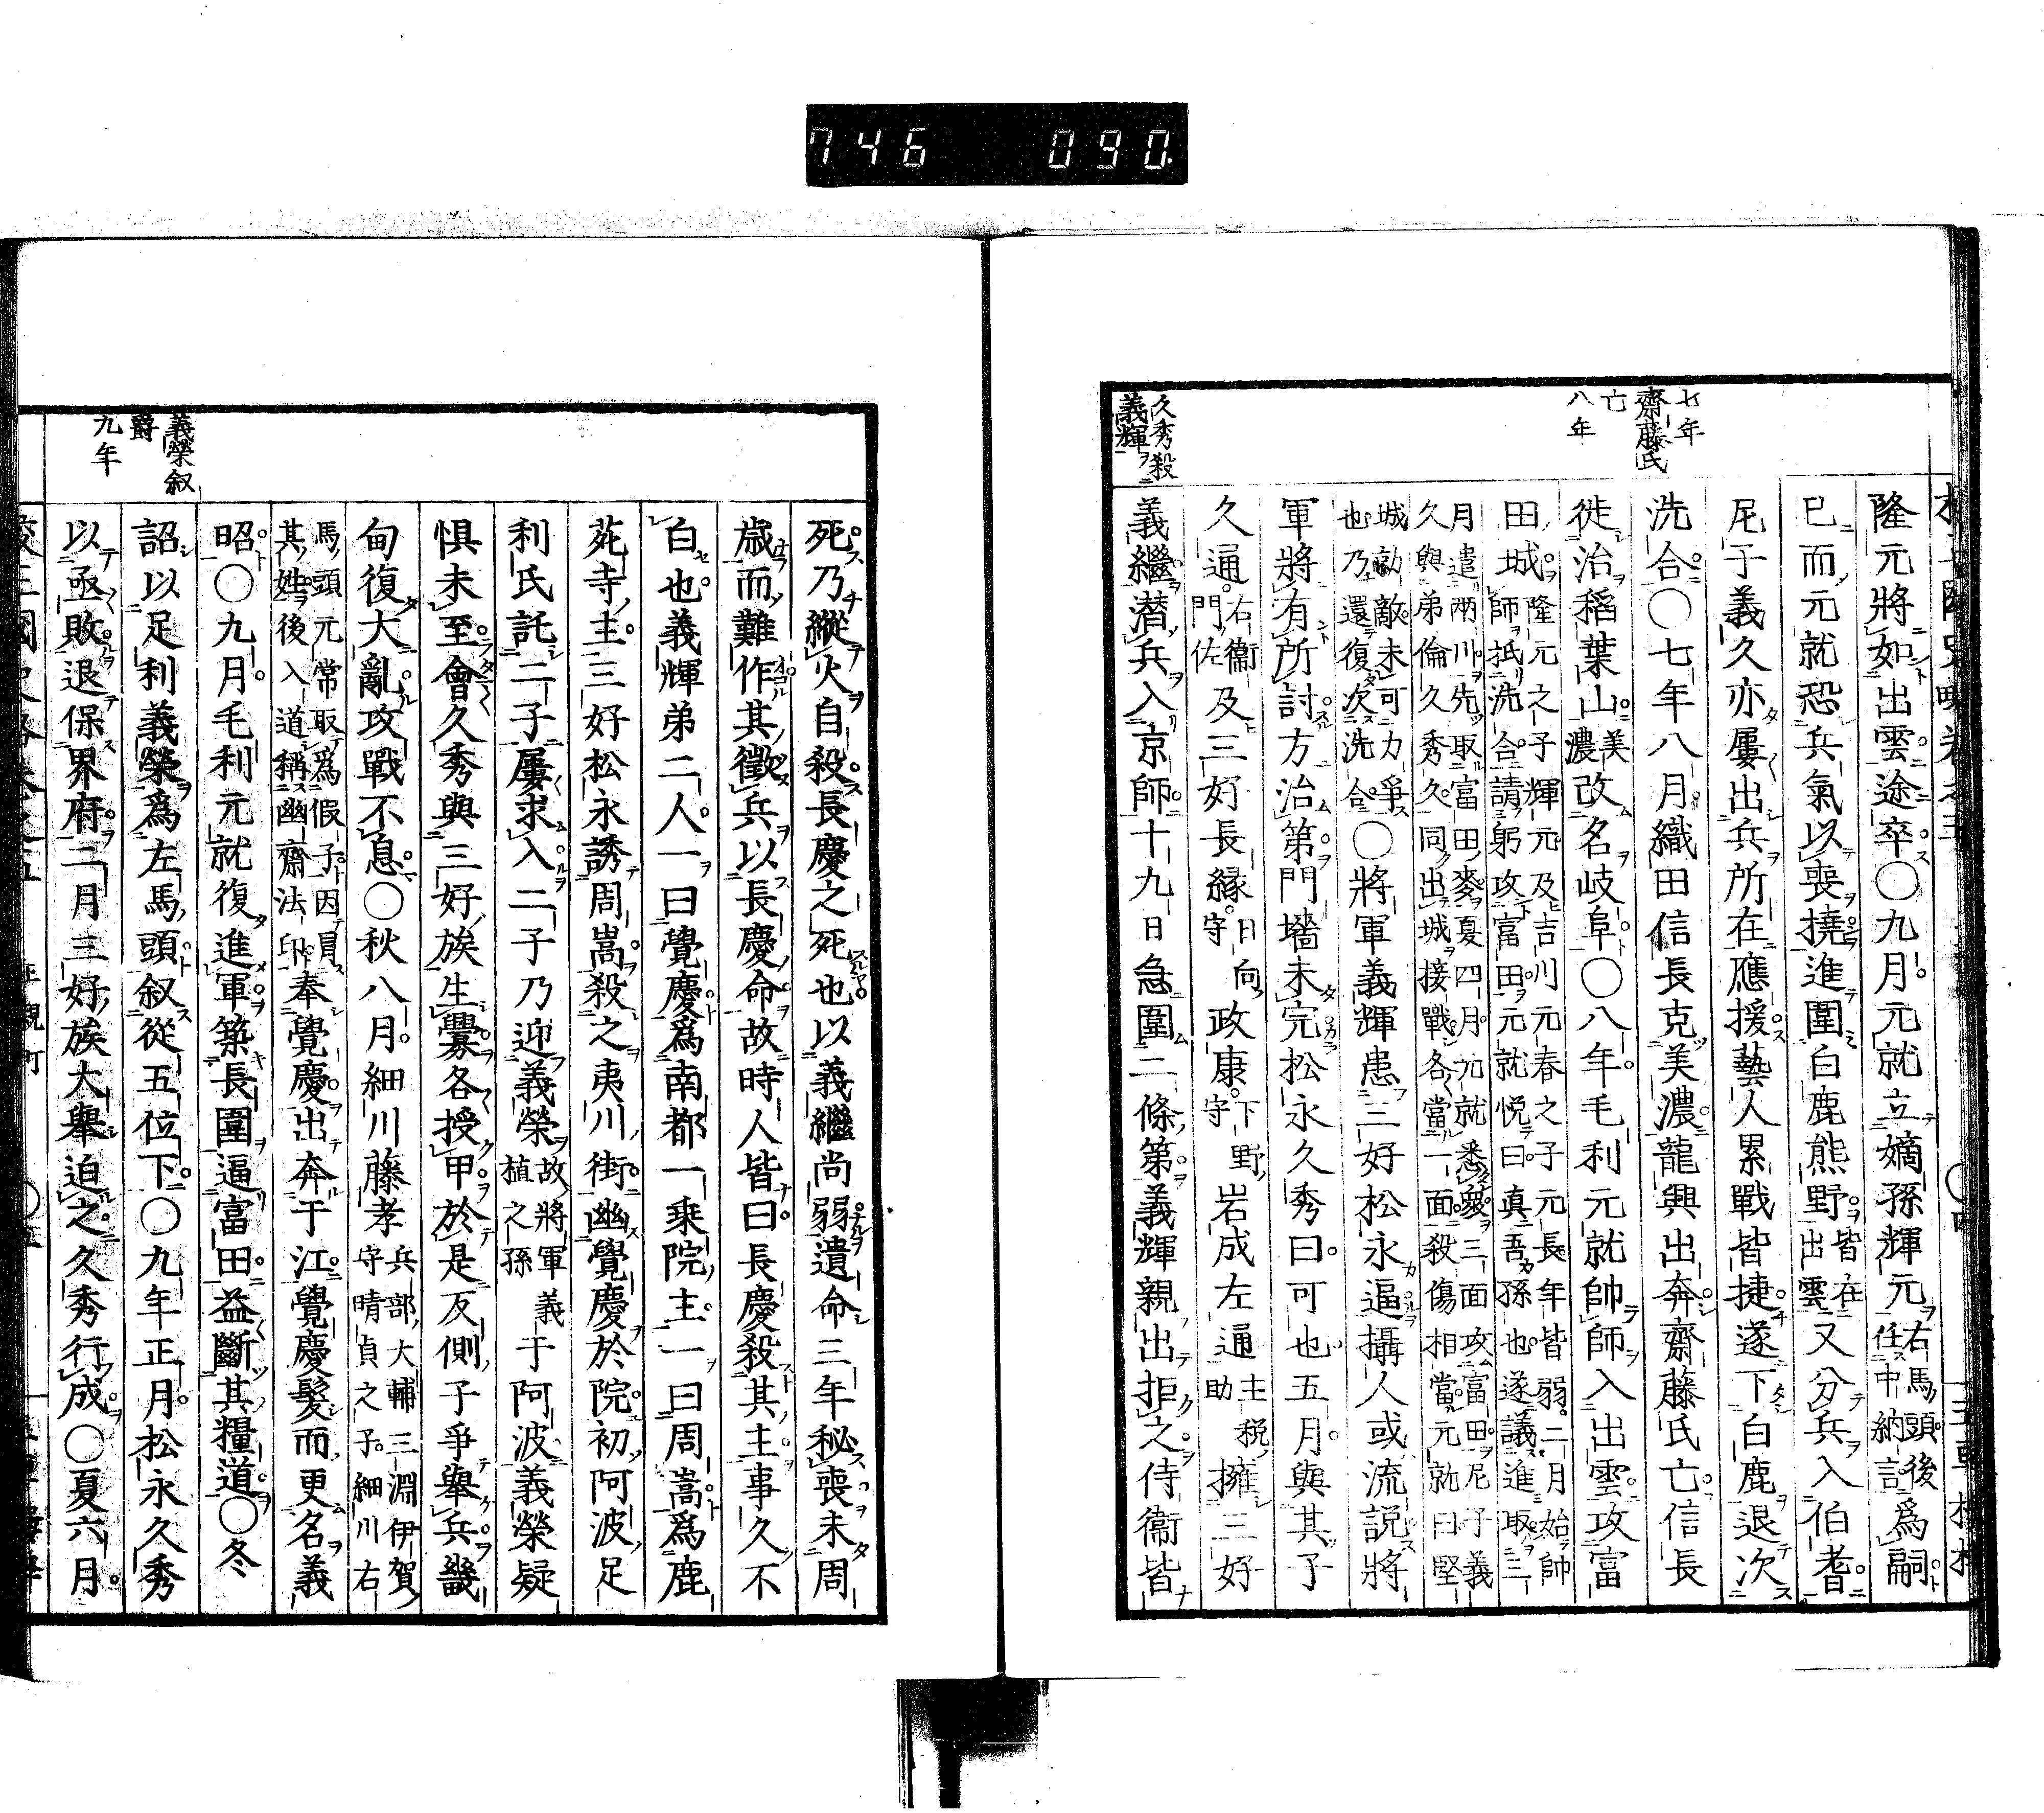 746 090
七年
齋藤氏
亡
八年
久秀殺
義輝
隆元將如出雲途卒〇九月元就立嫡孫輝元右馬頭後任中納言爲嗣
已而元就恐兵氣以喪撓進圍白鹿熊野皆在出雲又分兵入伯耆
尼子義久亦屢出兵所在應援藝人累戰皆捷遂下白鹿退次
洗合〇七年八月織田信長克美濃龍興出奔齋藤氏亡信長
徙治稻葉山美濃改名岐阜〇八年毛利元就帥師入出雲攻富
田城隆元之子輝元及吉川元春之子元長年皆弱二月始帥
師抵洗合請躬攻富田元就悦曰真吾孫也遂議進取三
月遣兩川先取富田麥夏四月元就悉衆三面攻富田尼子義
久與弟倫久秀久同出城接戰各當一面殺傷相當元就曰堅
城勍敵未可力爭
也乃還復次洗合〇將軍義輝患三好松永逼攝人或流説將
軍將有所討方治第門墻未完松永久秀曰可也五月與其子
久通右衞門佐及三好長縁日向守政康下野守岩成左通主税助擁三好
義繼潜兵入京師十九日急圍二條第義輝親出拒之侍衞皆
義榮叙
爵
九年
死乃縱火自殺長慶之死也以義繼尚弱遺命三年秘喪未周
歳而難作其徵兵以長慶命故時人皆曰長慶殺其主事久不
白也義輝弟二人一曰覺慶爲南都一乘院主一曰周暠爲鹿
苑寺主三好松永誘周暠殺之夷川街幽覺慶於院初阿波足
利氏託二子屢求入二子乃迎義榮故將軍義植之孫于阿波義榮疑
懼未至會久秀與三好族生釁各授甲於是反側子爭舉兵畿
甸復大亂攻戰不息〇秋八月細川藤孝兵部大輔三淵伊賀守晴貞之子細川右
馬頭元常取爲假子因冒其姓後入道稱幽齋法印奉覺慶出奔于江覺慶髮而更名義
昭〇九月毛利元就復進軍築長圍逼富田益斷其糧道〇冬
詔以足利義榮爲左馬頭叙從五位下〇九年正月松永久秀
以亟敗退保界府二月三好族大舉迫之久秀行成〇夏六月